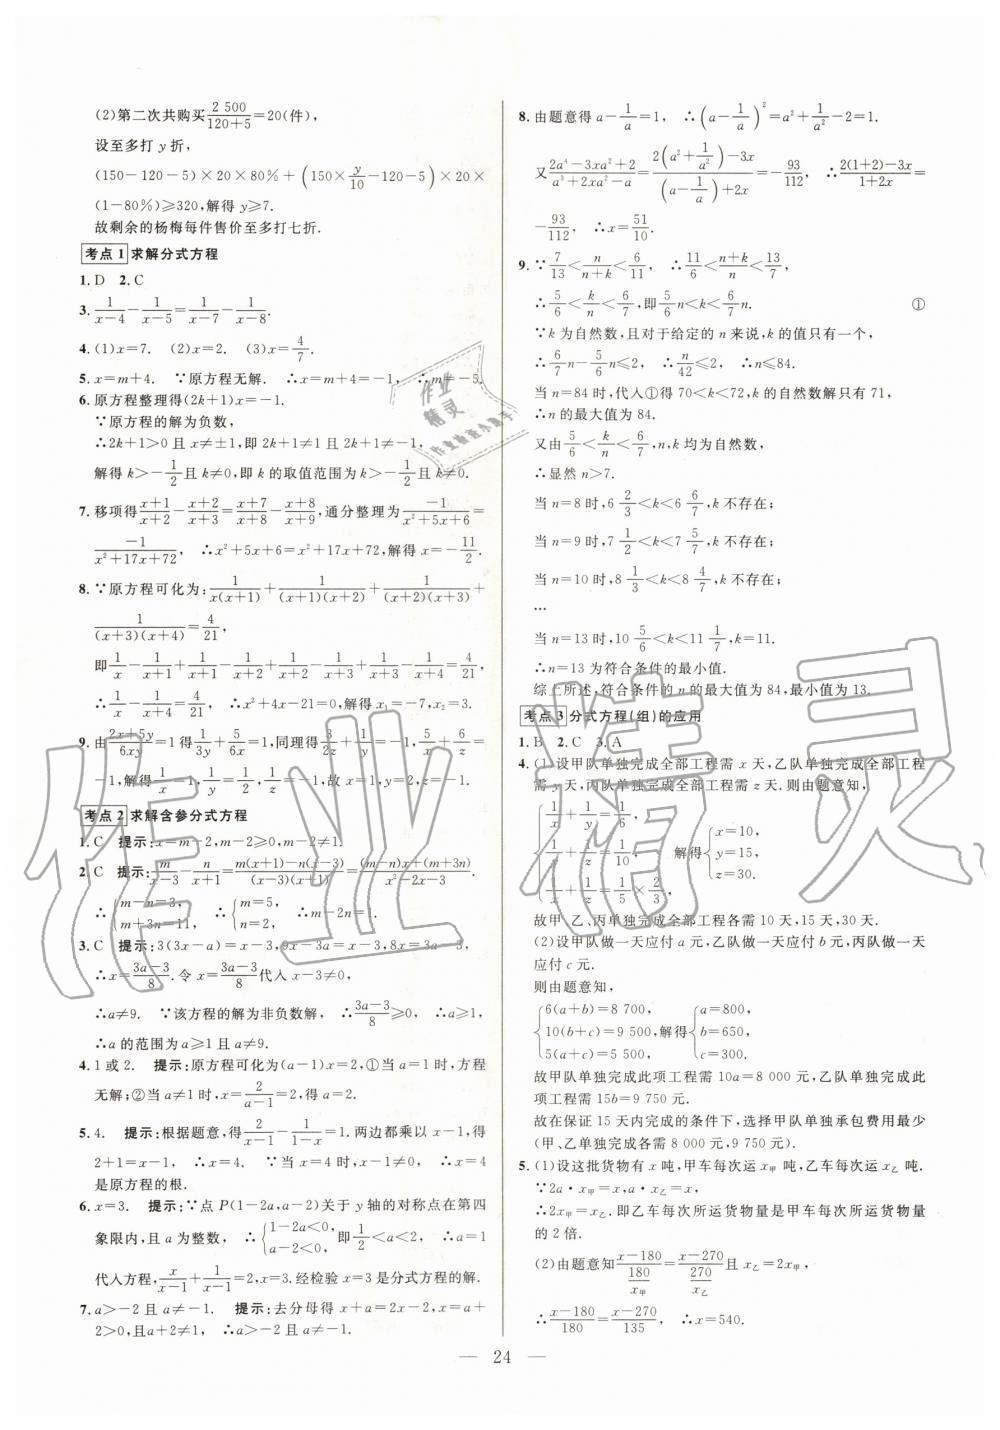 (2)第二次共购买2 500/(120+5)=20(件),
设至多打 y 折,
(150-120-5)×20×80%+(150×y/10-120-5)×20×
(1-80%)≥320,解得 y≥7.
故剩余的杨梅每件售价至多打七折.
考点1 求解分式方程
1. D 2. C
3. 1/(x-4)-1/(x-5)=1/(x-7)-1/(x-8).
4. (1)x=7. (2)x=2. (3)x=4/7.
5. x=m+4. ∵原方程无解. ∴x=m+4=-1. ∴m=-5.
6. 原方程整理得(2k+1)x=-1.
∵原方程的解为负数,
∴2k+1>0 且 x≠±1,即 2k+1≠1 且 2k+1≠-1,
解得 k>-1/2 且 k≠0,即 k 的取值范围为 k>-1/2 且 k≠0.
7. 移项得(x+1)/(x+2)-(x+2)/(x+3)=(x+7)/(x+8)-(x+8)/(x+9),通分整理为-1/(x²+5x+6)=
-1/(x²+17x+72), ∴x²+5x+6=x²+17x+72,解得 x=-11/2.
8. ∵原方程可化为:1/(x(x+1))+1/((x+1)(x+2))+1/((x+2)(x+3))+
1/((x+3)(x+4))=4/21,
即1/x-1/(x+1)+1/(x+1)-1/(x+2)+1/(x+2)-1/(x+3)+1/(x+3)-1/(x+4)=4/21,
∴1/x-1/(x+4)=4/21, ∴x²+4x=21,解得 x₁=-7,x₂=3.
9. 由(2x+5y)/(6xy)=1得1/(3y)+5/(6x)=1,同理得3/(2z)+2/y=1,5/x+6/z
=-1,解得1/x= 1/y= 1/z=-1,故 x=1,y=2,z=-1.
考点2 求解含参分式方程
1. C 提示:x=m-2,m-2≥0,m-2≠1.
2. C 提示:m/(x-3)-n/(x+1)=(m(x+1)-n(x-3))/((x-3)(x+1))=((m-n)x+(m+3n))/(x²-2x-3).
∴{m-n=3, m+3n=11, ∴{m=5, n=2, ∴m-2n=1.
3. C 提示:3(3x-a)=x-3,9x-3a=x-3,8x=3a-3,
∴x=(3a-3)/8.令 x=(3a-3)/8代入 x-3≠0,
∴a≠9. ∵该方程的解为非负数, ∴(3a-3)/8≥0, ∴a≥1.
∴a 的范围为 a≥1 且 a≠9.
4. 1 或 2. 提示:原方程可化为(a-1)x=2,①当 a=1 时,方程
无解;②当 a≠1 时,x=2/(a-1)=2,∴a=2.
5. 4. 提示:根据题意,得2/(x-1)-1/(1-x)=1.两边都乘以 x-1,得
2+1=x-1. ∴x=4. ∵当 x=4 时,x-1≠0, ∴x=4
是原方程的根.
6. x=3. 提示:∵点 P(1-2a,a-2)关于 y 轴的对称点在第四
象限内,且 a 为整数, ∴{1-2a<0, a-2<0, 即1/2<a<2, ∴a=1
代入方程,x/(x-1)+1/(x-1)=2,x=3.经检验 x=3 是分式方程的解.
7. a>-2 且 a≠-1. 提示:去分母得 x+a=2x-2,x=a+
2>0,且 a+2≠1. ∴a>-2 且 a≠-1.
8. 由题意得 a-1/a=1, ∴(a-1/a)²=a²+1/a²-2=1.
又(2a⁴-3xa²+2)/(a³+2xa²-a)=(2(a²+1/a²)-3x)/((a-1/a)+2x)=-93/112, ∴(2(1+2)-3x)/(1+2x)=
-93/112, ∴x=51/10.
9. ∵7/13<n/(n+k)<6/11, ∴11/6<(n+k)/n<13/7,
∴5/6<k/n<6/7,即5/6n<k<6/7n. ①
∵k 为自然数,且对于给定的 n 来说,k 的值只有一个,
∴6/7n-5/6n≤2, ∴n/42≤2, ∴n≤84.
当 n=84 时,代入①得 70<k<72,k 的自然数解只有 71,
∴n 的最大值为 84.
又由5/6<k/n<6/7,n,k 均为自然数,
∴显然 n>7.
当 n=8 时,6 2/3<k<6 6/7,k 不存在;
当 n=9 时,7 1/2<k<7 5/7,k 不存在;
当 n=10 时,8 1/3<k<8 4/7,k 不存在;
…
当 n=13 时,10 5/6<k<11 1/7,k=11.
∴n=13 为符合条件的最小值.
综上所述,符合条件的 n 的最大值为 84,最小值为 13.
考点3 分式方程(组)的应用
1. B 2. C 3. A
4. (1)设甲队单独完成全部工程需 x 天,乙队单独完成全部工程
需 y 天,丙队单独完成全部工程需 z 天.则由题意知,
{1/x+1/y=1/6, 1/y+1/z=1/10, 1/x+1/z=1/5×2/3, 解得{x=10, y=15, z=30.
故甲、乙、丙单独完成全部工程各需 10 天,15 天,30 天.
(2)设甲队做一天应付 a 元,乙队做一天应付 b 元,丙队做一天
应付 c 元.
则由题意知,
{6(a+b)=8 700, 10(b+c)=9 500, 5(a+c)=5 500, 解得{a=800, b=650, c=300.
故甲队单独完成此项工程需 10a=8 000 元,乙队单独完成此
项工程需 15b=9 750 元,
故在保证 15 天内完成的条件下,选择甲队单独承包费用最少
(甲、乙单独完成各需 8 000 元,9 750 元).
5. (1)设这批货物有 x 吨,甲车每次运 x甲 吨,乙车每次运 x乙 吨.
∵2a·x甲=x,a·x乙=x,
∴2x甲=x乙.即乙车每次所运货物量是甲车每次所运货物量
的 2 倍.
(2)由题意知(x-180)/(180/x甲)=(x-270)/(270/x乙)且 x乙=2x甲,
∴(x-180)/180=(x-270)/135, ∴x=540.
— 24 —
作业精灵